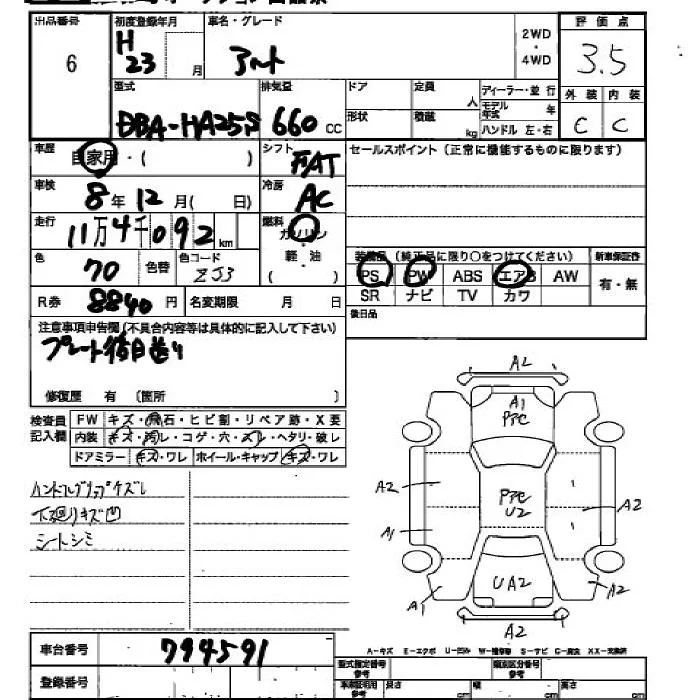 出品番号 初度登録年月 車名・グレード 2WD ・ 4WD 評価点
6 H 23 月 アルト 3.5
型式 排気量 ドア 定員 人 ディーラー・並行 外装 内装
モデル年式 年
DBA-HA25S 660 CC 形状 積載 kg ハンドル 左・右 C C
車歴 自家用・( ) シフト FAT セールスポイント (正常に機能するものに限ります)
車検 8年 12月( 日) 冷房 AC
走行 11万4千092km 燃料 ガソリン
装備品 (純正品に限り○をつけてください) 新車保証書
色 70 色替 色コード ZJ3 軽・油 ( )
PS PW ABS エアB AW 有・無
R券 8840円 名変期限 月 日 SR ナビ TV カワ
注意事項申告欄(不具合内容等は具体的に記入して下さい) 後日品
プレート後日送り
修復歴 有 (箇所 )
検査員記入欄 FW キズ・飛石・ヒビ割・リペア跡・X要
内装 キズ・汚レ・コゲ・穴・スレ・ヘタリ・破レ
ドアミラー キズ・ワレ ホイール・キャップ キズ・ワレ
ハンドルグリップキズレ
下廻りキズ凹
シートシミ
A2
A1
PFC
A2
PFC
U2
A2
A1
UA2
A1
A2
A2
車台番号 794591
A-キズ E-エクボ U-凹み W-補修跡 S-サビ C-腐食 XX-交換済
登録番号 型式指定番号 参考 類別区分番号 参考
長さ cm 幅 cm 高さ cm